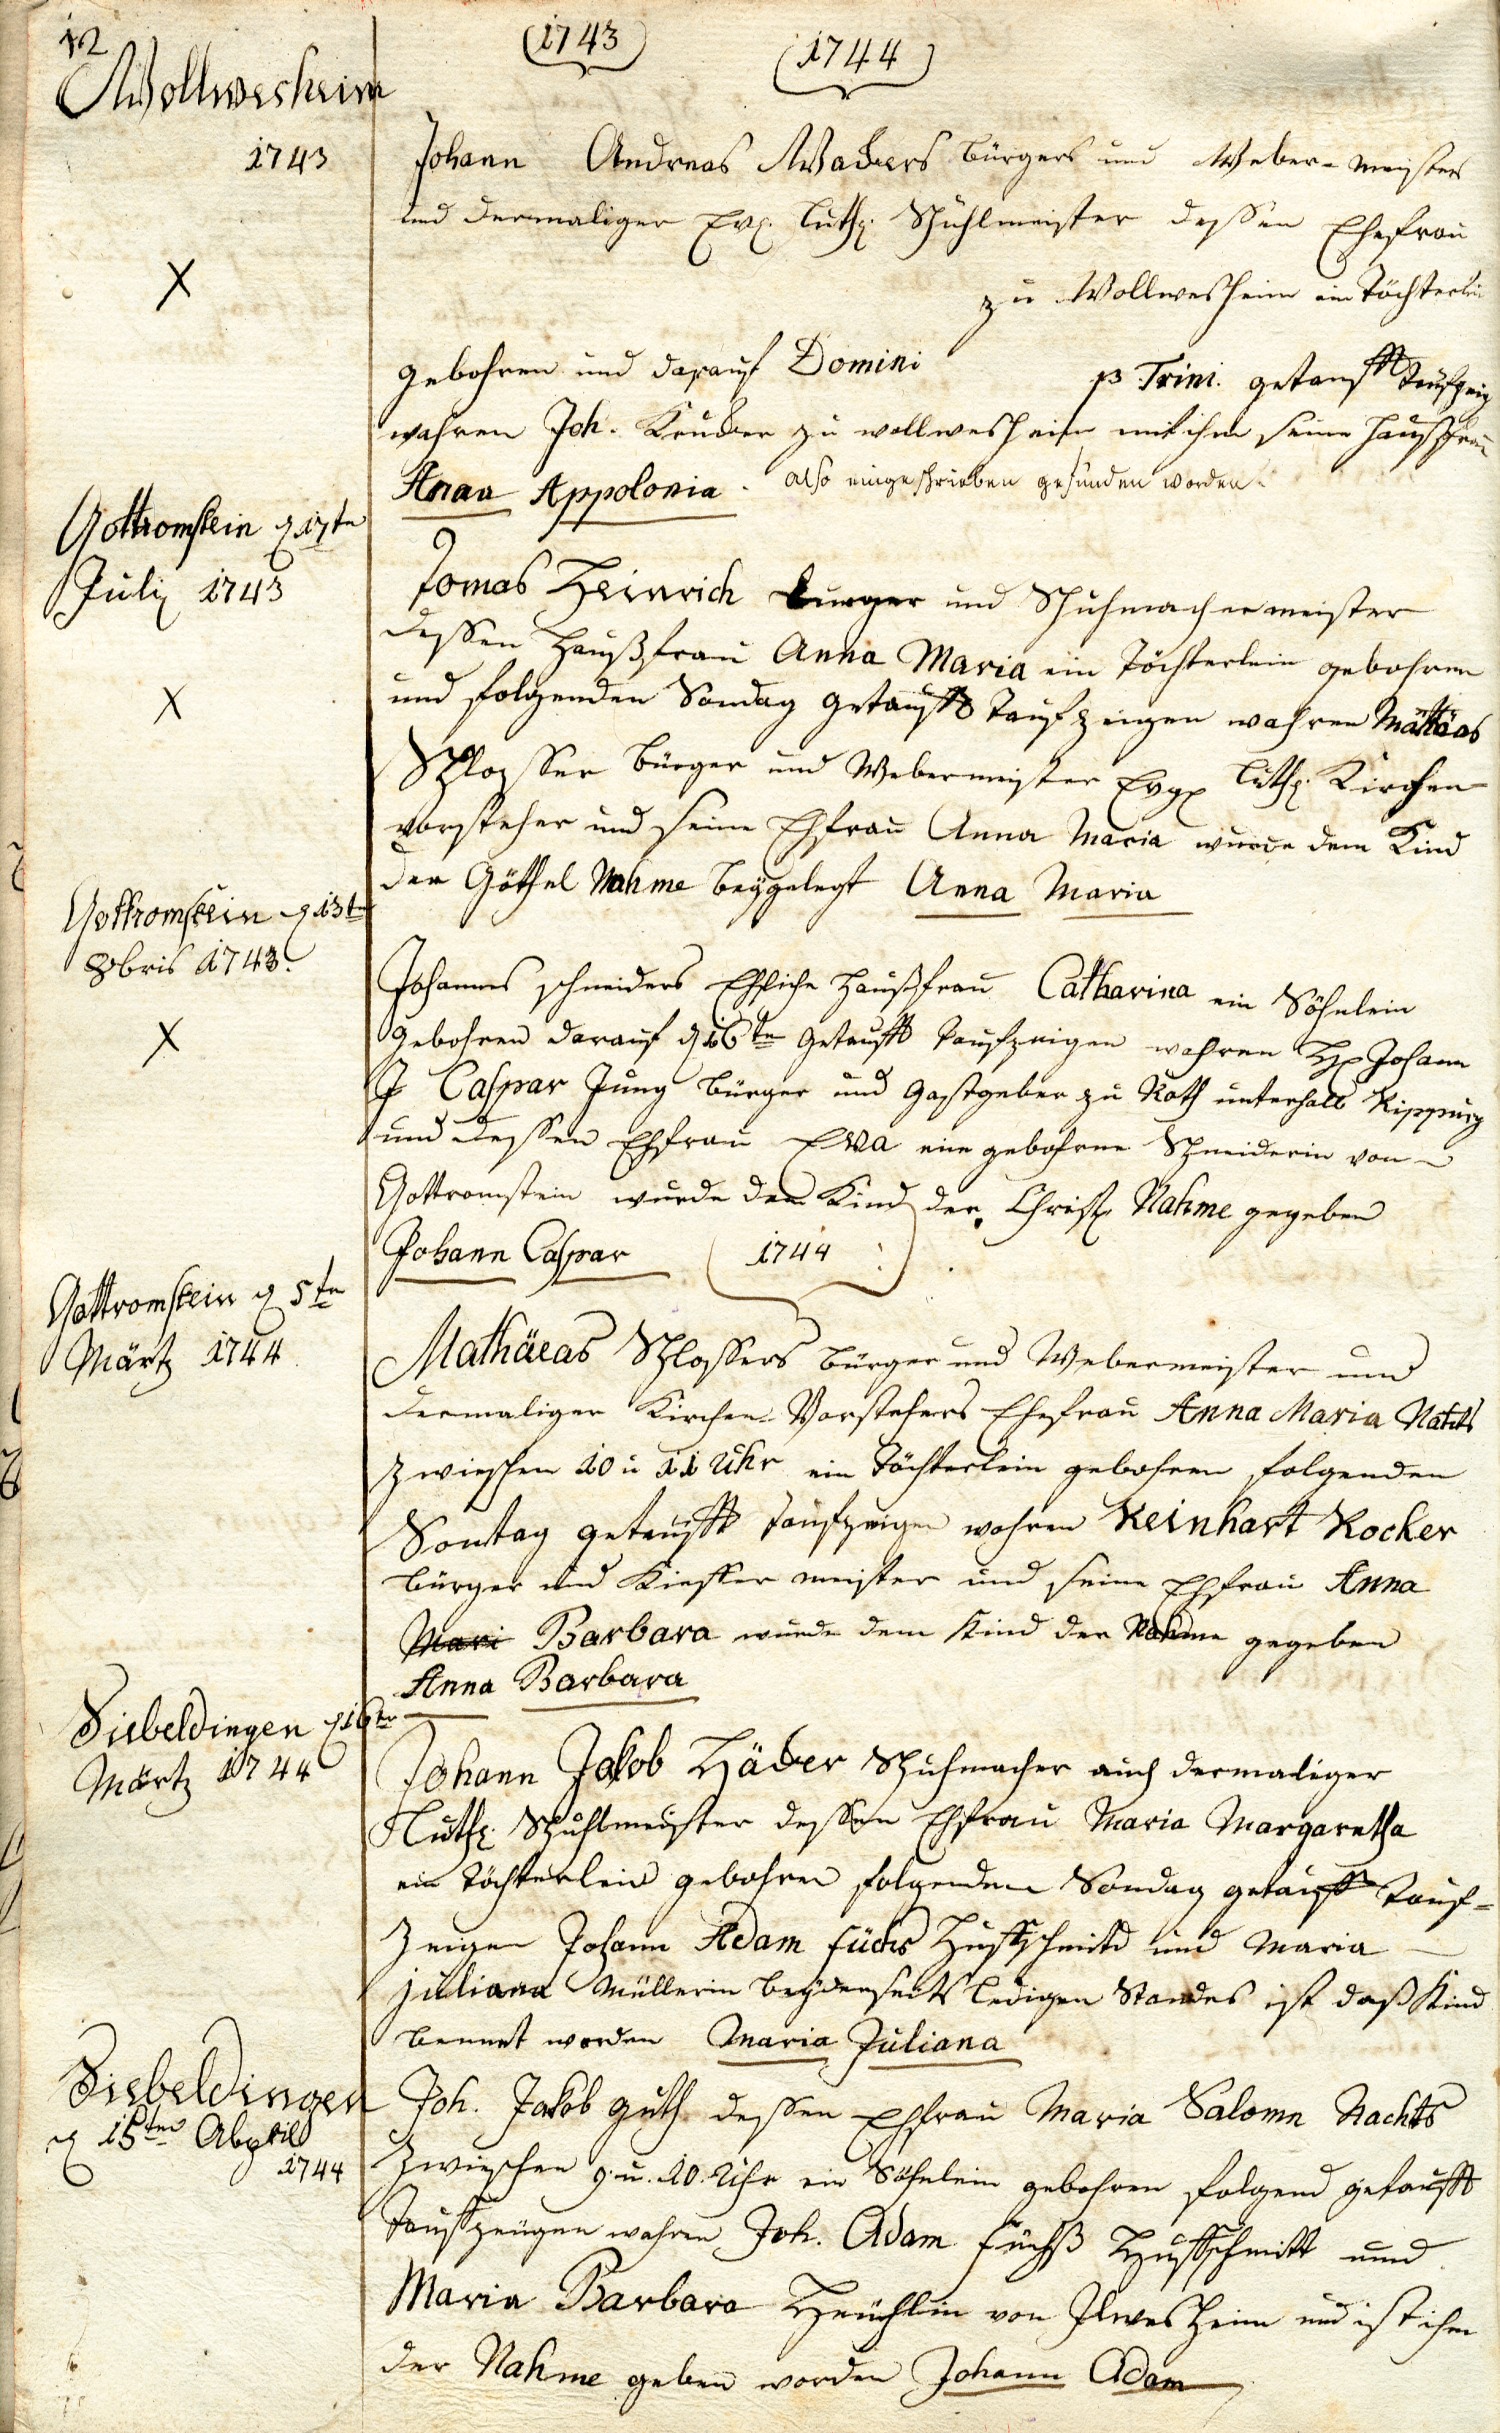 12
1743
1744
Wollmesheim
1743
Johann Andreas Wackers Bürgers und Weber-meisters
und dermaliger Ev. Luth. Schuhlmeister dessen Ehefrau
zu Wollmesheim ein Töchterlein
gebohren und darauf Domini p Trini. getaufft Taufzeig
wahren Joh. Krucker zu wollmesheim mit ihm seine Haußfrau
Anna Appolonia. also eingeschrieben gefunden worden.
Gottromstein d 17te
Julij 1743
Tomas Heinrich Burger und Schuhmachermeister
dessen Haußfrau Anna Maria ein Töchterlein gebohren
und folgenden Sondag getaufft Taufzeigen wahren Mattäas
Schlosser Bürger und Webermeister Evg Luth. Kirchen
vorsteher und seine Ehfrau Anna Maria wurde dem Kind
der Göthel Nahme beygelegt Anna Maria
Gottromstein d 13te
8bris 1743.
Johannes schneiders Ehliche Haußfrau Catharina ein Söhnlein
gebohren darauf d 16te getaufft Taufzeigen wahren H Johann
J Caspar Jung Bürger und Gastgeber zu Roth unterhalb Rippurg
und dessen Ehfrau Eva eine gebohrne Schneiderin von
Gottromstein wurde dem Kind der Christ. Nahme gegeben
Johann Caspar 1744
Gottromstein d 5te
Märtz 1744
Mathäeas Schlossers Bürger und Webermeister und
dermaliger Kirchen-Vorstehers Ehefrau Anna Maria Nachts
zwieschen 10 u 11 Uhr ein Töchterlein gebohren folgenden
Sontag getaufft Taufzeigen wahren Reinhart Rocker
Bürger und Kieffer meister und seine Ehfrau Anna
Mari Barbara wurde dem Kind der Nahme gegeben
Anna Barbara
Siebeldingen d 16te
Märtz 1744
Johann Jakob Häcker Schuhmacher auch dermaliger
Luth. Schuhlmeister dessen Ehfrau Maria Margaretha
ein Töchterlein gebohren folgenden Sondag getaufft Tauf-
Zeigen Johann Adam Füchs Huffschmitd und Maria
Juliana Müllerin beydenseits ledigen Standes ist daß Kind
bennet worden Maria Juliana
Siebeldingen
d 15ten Abpril
1744
Joh. Jakob Guth dessen Ehfrau Maria Salome Nachts
zwieschen 9. u. 10. Uhr ein Söhnlein gebohren folgend getaufft
Taufzeügen wahren Joh. Adam Füchß Huffschmitt und
Maria Barbara von Ilwesheim und ist ihm
der Nahme geben worden Johann Adam